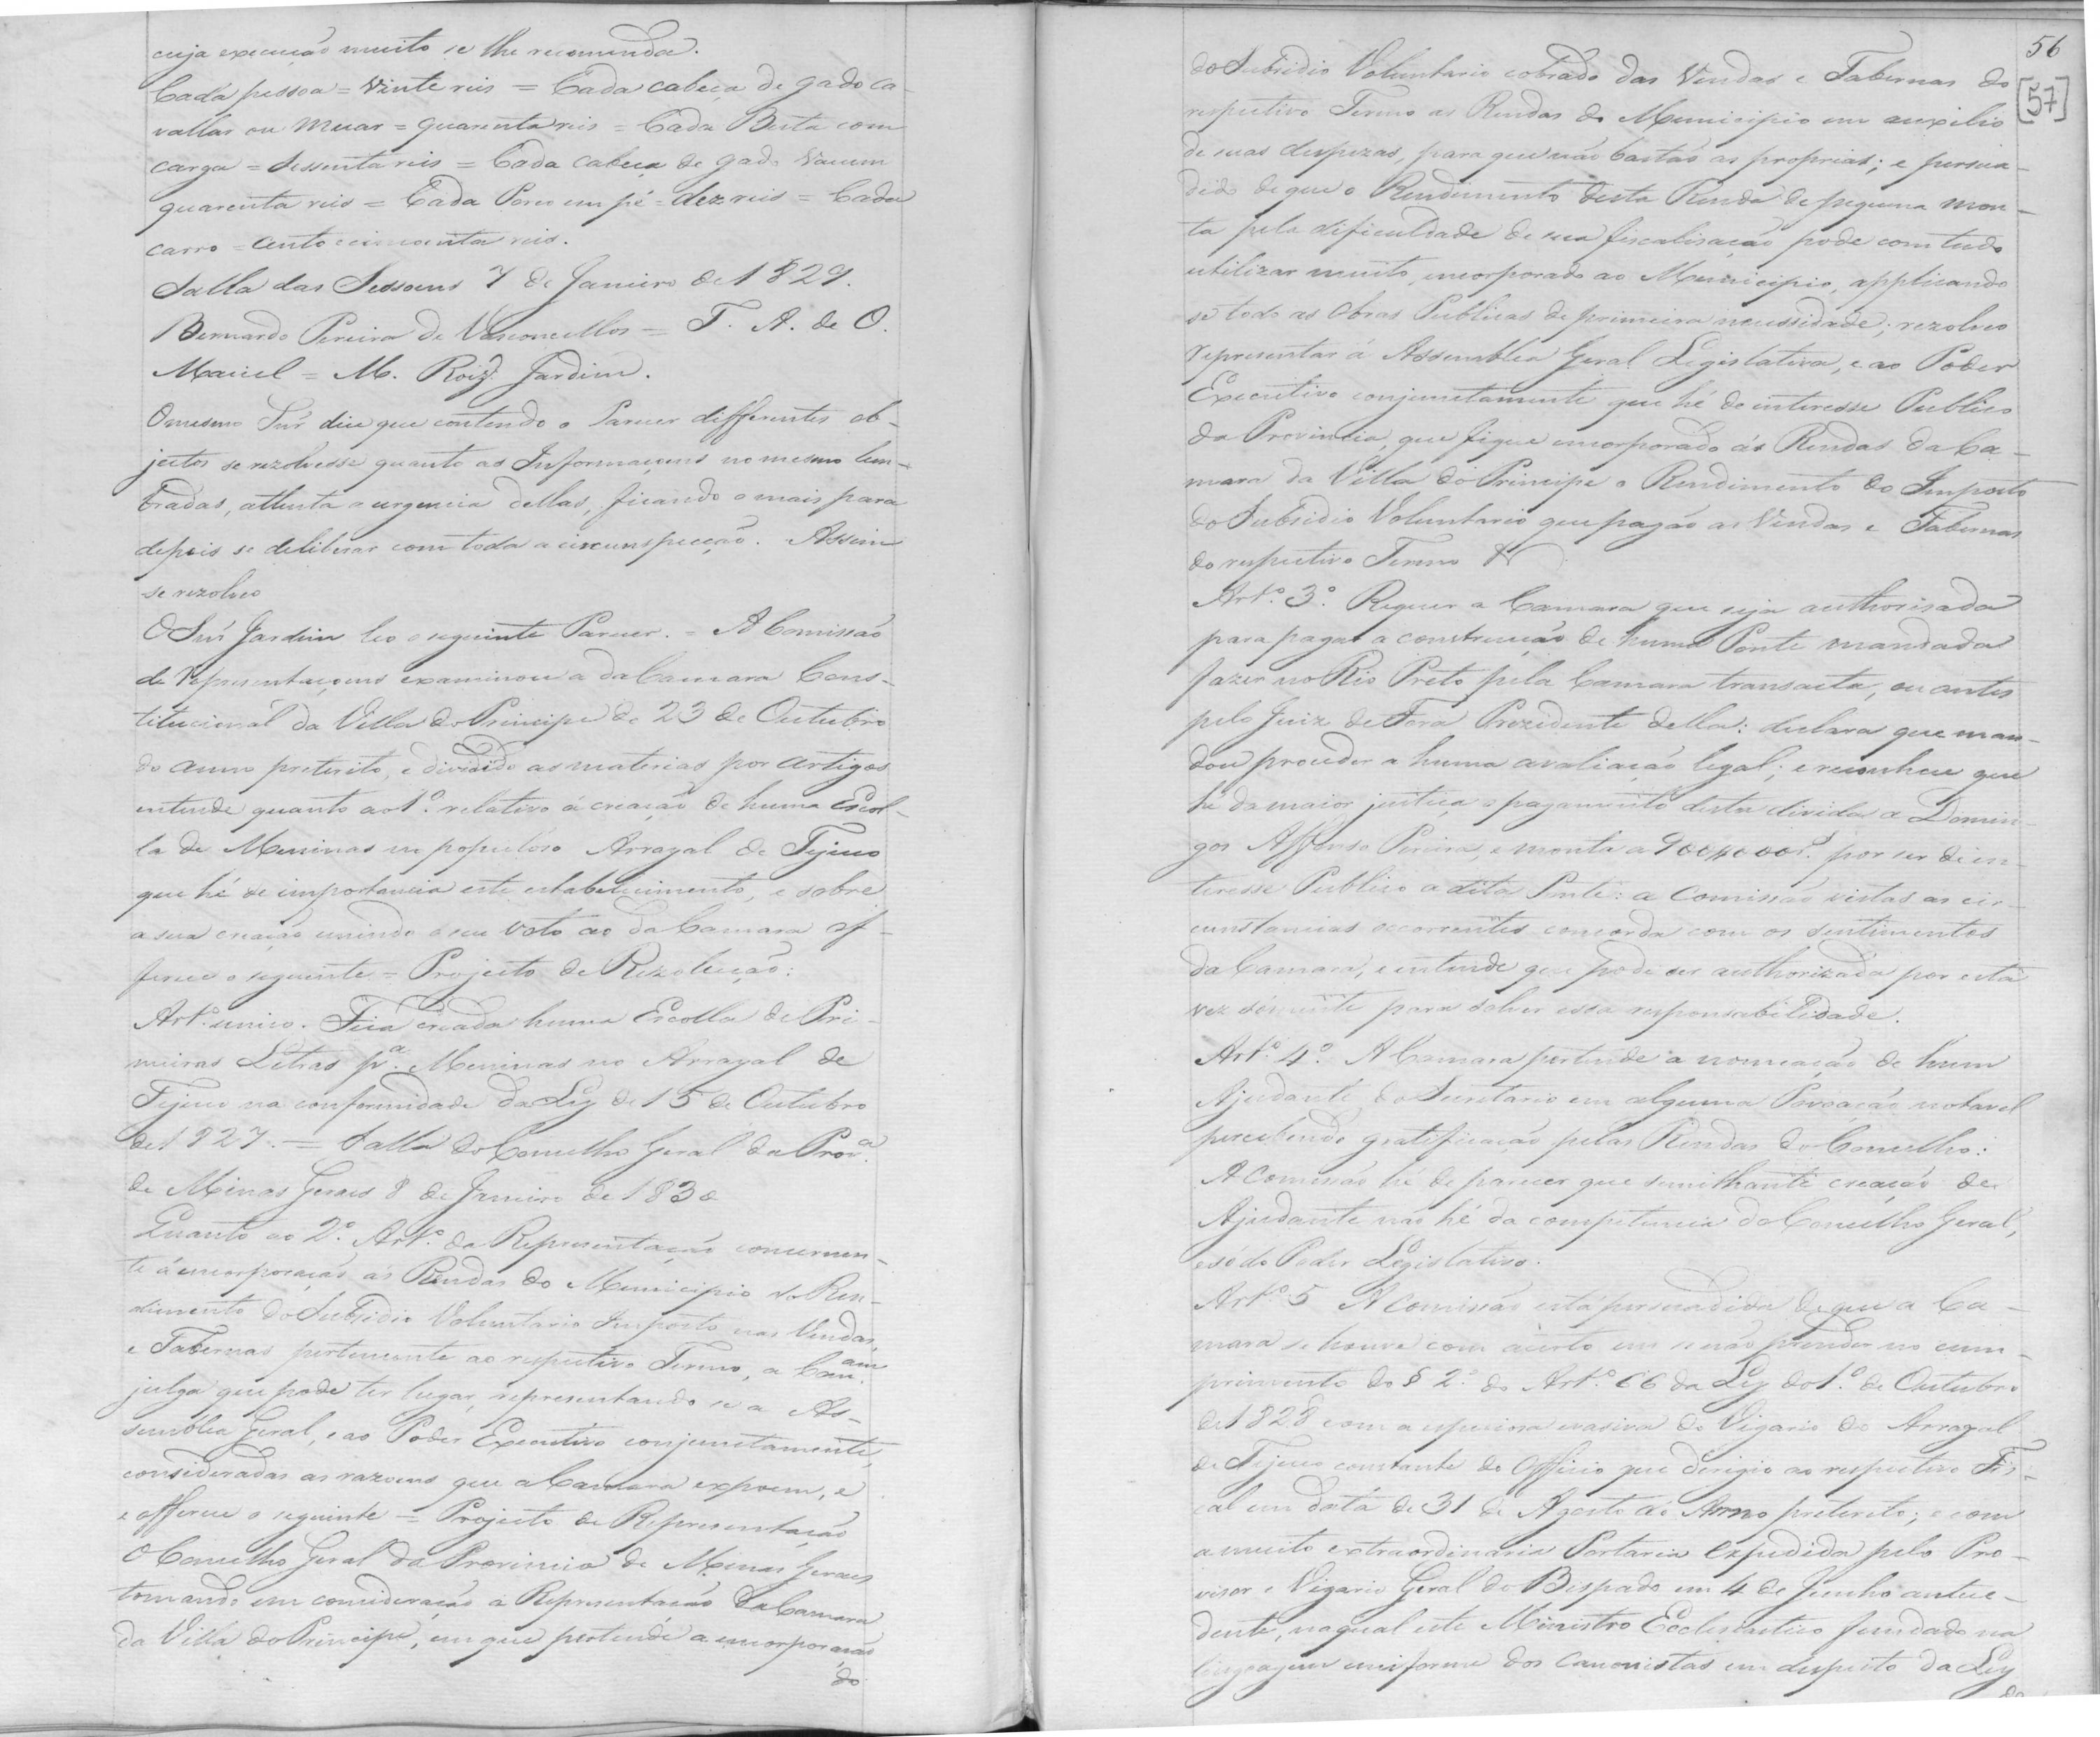 cuja execução muito se lhe recomenda.
Cada pessoa = Vinte reis = Cada cabeça de gado ca-
vallar ou Muar = quarenta reis = Cada Besta com
carga = Sessenta reis = Cada cabeça de gado Vacum
quarenta reis = Cada Porco em pé = dez reis = Cada
carro = Cento e cincoenta reis.
Salla das Sessoens 7 de Janeiro de 1829.
Bernardo Pereira de Vasconcellos = T. A. de O.
Maciel = M. Roiz. Jardim.
O mesmo Snr dice que contendo o Parecer differentes ob-
jectos se rezolvesse quanto as Informaçoens no mesmo lem-
bradas, attenta a urgencia dellas, ficando o mais para
depois se deliberar com toda a circunspecção. Assim
se rezolveo
O Snr Jardim leo o seguinte Parecer. = A Comissão
de Representaçoens examinou a da Camara Cons-
titucional da Villa do Principe de 23 de Outubro
do anno preterito, e dividido as materias por artigos
entende quanto ao 1º. relativo á creação de huma Escol-
la de Meninas no populoso Arrayal de Tejuco
que hé de importancia este estabelecimento, e sobre
a sua creação unindo o seu Voto ao da Camara of-
ferece o seguinte = Projecto de Rezolução:
Artº. unico. Fica creada huma Escolla de Pri-
meiras Letras pª. Meninas no Arrayal de
Tejuco na conformidade da Ley de 15 de Outubro
de 1827. = Salla do Concelho Geral da Provª.
de Minas Geraes 8 de Janeiro de 1830
Quanto ao 2º. Artº. da Representação concernen-
te á incorporação ás Rendas do Municipio do Ren-
dimento do Subsidio Voluntario Imposto nas Vendas,
e Tabernas pertencente ao respectivo Termo, a Com.am
julga que pode ter lugar, representando se a As-
semblea Geral, e ao Poder Executivo conjunctamente,
consideradas as razoens que a Camara expoem, e
e offerece o seguinte = Projecto de Representação
O Concelho Geral da Provincia de Minas Geraes
tomando em consideração a Representação da Camara
da Villa do Principe, em que pertende a incorporação
do
56
[57]
do Subsidio Voluntario cobrado das Vendas e Tabernas do
respectivo Termo as Rendas do Municipio em auxilio
de suas despezas, para que não bastão as proprias; e persua-
dido de que o Rendimento desta Renda de pequena mon-
ta pela dificuldade de sua fiscalisação pode com tudo
utilizar muito, encorporado ao Municipio, applicando
se todo as Obras Publicas de primeira necessidade; rezolveo
representar á Assemblea Geral Legislativa, e ao Poder
Executivo conjunctamente que hé do interesse Publico
da Provincia, que fique encorporado ás Rendas da Ca-
mara da Villa do Principe o Rendimento do Imposto
do Subsidio Voluntario que pagão as Vendas e Tabernas
do respectivo Termo &
Artº. 3º. Requer a Camara que seja authorisada
para pagar a construcção de huma Ponte mandada
fazer no Rio Preto pela Camara transacta, ou antes
pelo Juiz de Fora Prezidente della: declara que man-
dou proceder a huma avaliação legal; e reconhece que
hé da maior justiça o pagamento desta divida a Domin-
gos Affonso Pereira, e monta a 900$000 rs. por ser de in-
teresse Publico a dita Ponte: a Comissão vistas as cir-
cunstancias occorrentes concorda com os sentimentos
da Camara, e entende que pode ser authorizada por esta
vez sómente para solver essa responsabilidade.
Artº. 4º. A Camara pertende a nomeação de hum
Ajudante do Secretario em alguma Povoação notavel
percebendo gratificação pelas Rendas do Concelho:
A Comissão hé de parecer que semilhante creação de
Ajudante não hé da competencia do Concelho Geral,
e só do Poder Legislativo.
Artº. 5 A Comissão está persuadida de que a Ca-
mara se houve com acerto em se não prender no cum-
primento do § 2º. do Artº. 66 da Ley do 1º. de Outubro
de 1828 com a especiosa evasiva do Vigario do Arrayal
de Tejuco constante do Officio que dirigio ao respectivo Fis-
cal em data de 31 de Agosto do Anno preterito; e com
a muito extraordinaria Portaria expedida pelo Pro-
visor e Vigario Geral do Bispado em 4 de Junho antece-
dente, na qual este Ministro Ecclesiastico fundado na
lingoagem uniforme dos Canonistas em despeito da Ley